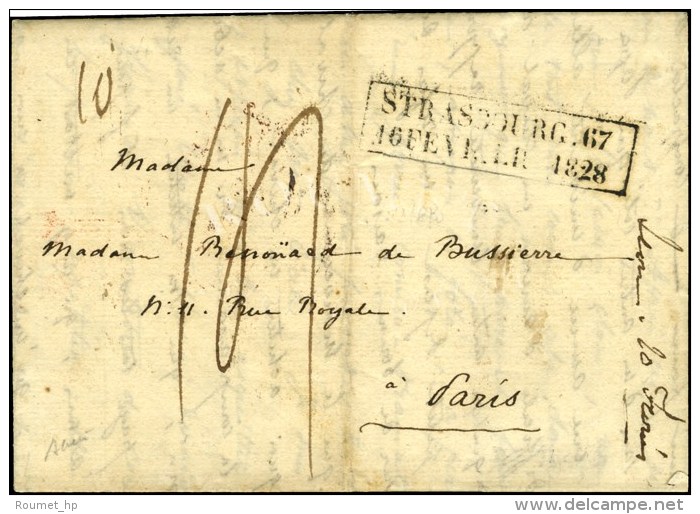 10
STRASBOURG. 67
16 FEVRIER 1828
Madame
Madame Renoüard de Bussierre
N: 11. Rue Royale.
à Paris
Roumet_hp
delcampe.net